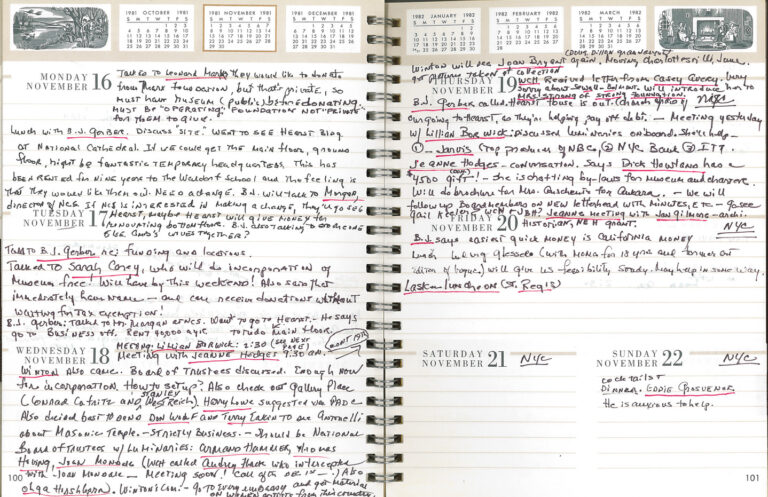 1981 OCTOBER 1981
S M T W T F S
1981 NOVEMBER 1981
S M T W T F S
1981 DECEMBER 1981
S M T W T F S
MONDAY
NOVEMBER 16
Talked to Leonard Marks they would like to donate
from Marks Foundation, but that's private, so
must have museum (public) before donating.
MUST BE "OPERATING" FOUNDATION NOT "PRIVATE"
FOR THEM TO GIVE.
Lunch with B.J. Gerber. Discuss "site" WENT TO SEE HEARST BLDG
AT NATIONAL CATHEDRAL. If we could get the main floor, ground
floor, might be fantastic temporary headquarters. This has
been rented for nine years to the Waldorf School and the feeling is
that they would like them out. Need a change. B.J. will talk to Morgan,
director of NCS. If NCS is interested in making a change, they'll go see
TUESDAY
NOVEMBER 17
Hearst, maybe Hearst will give money for
renovating bottom floor. B.J. also talking to someone
Talked to B.J. Gerber re: funding and locations.
Talked to Sarah Carey, who will do incorporation of
Museum free! Will have by this weekend! Also said that
immediately have name — and can receive donations without
waiting for tax exemption!
B.J. Gerber: Talked to Mr Morgan at NCS. Want to go to Hearst. He says
go to Business off. Rent 40,000 a yr. to redo Main Floor.
WEDNESDAY
NOVEMBER 18
MEETING: LILLIAN BORWICK: 2:30 (SEE NEXT PAGE)
Meeting with JEANNE HODGES 9:30 AM.
Winton also came. Board of Trustees discussed. Enough now
for incorporation. How to set up? Also check out Gallery Place
(Conrad Cafritz and STANLEY Westreich). Harry Lowe suggested via PADC
Also decided best to send Don Wolf and Terry Eakin to see Antonelli
about Masonic Temple. — STRICTLY BUSINESS. — Should be National
Board of trustees w/ Luminaries: ARMAND HAMMER, Thomas
Hoving, JOAN MONDALE (WCH called Audrey
with Joan Mondale — Meeting soon! Call after Dec 1st —.) Also
Olga Hirshhorn. WINTON'S Com: - Go to every embassy and get material
on WOMEN ARTISTS from this country.
100
1982 JANUARY 1982
S M T W T F S
1982 FEBRUARY 1982
S M T W T F S
1982 MARCH 1982
S M T W T F S
Winton will see Joan Bryant again, Moving Charlottesville, June.
1st picture taken of collection
THURSDAY
NOVEMBER 19
WCH Received letter from Casey Avery. Very
sorry about Sewall-Belmont. Will introduce her to
MRS. STRONG OF STRONG FOUNDATION.
B.J. Gerber called. Hearst House is out (Church
NYC
going to Hearst, so they're helping pay off debt. — Meeting yesterday
w/ Lillian Borwick: Discussed luminaries on board. She'll help —
① — Jarvis (Top producer of NBC), ② NYC Bank ③ ITT.
Jeanne Hodges - conversation. Says Dick Howland has a
$4500 gift! — She is chatting by-laws for museum and charter.
Will do brochure for Mrs. for Ankara. — We will
follow up Boardmembers on new letterhead with MINUTES, ETC — Go see
JEANNE meeting with Jon Gilmore - archi.
FRIDAY
NOVEMBER 20
HISTORIAN, NEH GRANT.
NYC
B.J. says easiest quick money is CALIFORNIA MONEY
Lunch (with MOMA for 18 yrs and former art
editor of Vogue) will give us feasibility study. May help in some way.
Lasker luncheon (St. Regis)
SATURDAY
NOVEMBER 21
NYC
SUNDAY
NOVEMBER 22
NYC
Cocktails &
Dinner. EDDIE GROSVENOR
He is anxious to help.
101